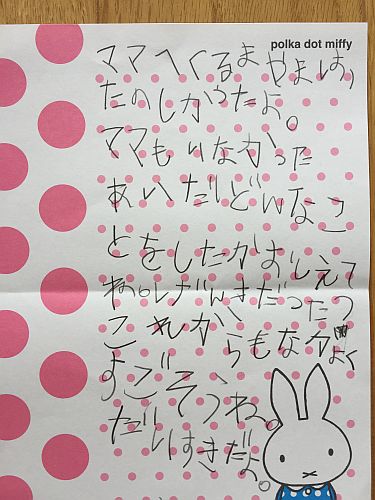 polka dot miffy
ママへくるまやまは,
たのしかつたよ。
ママもいなかった
あいだどんなこ
とをしたかおしえて
ね。げんきだった
これからもなかよく
すごそうね。
だいすきだよ。